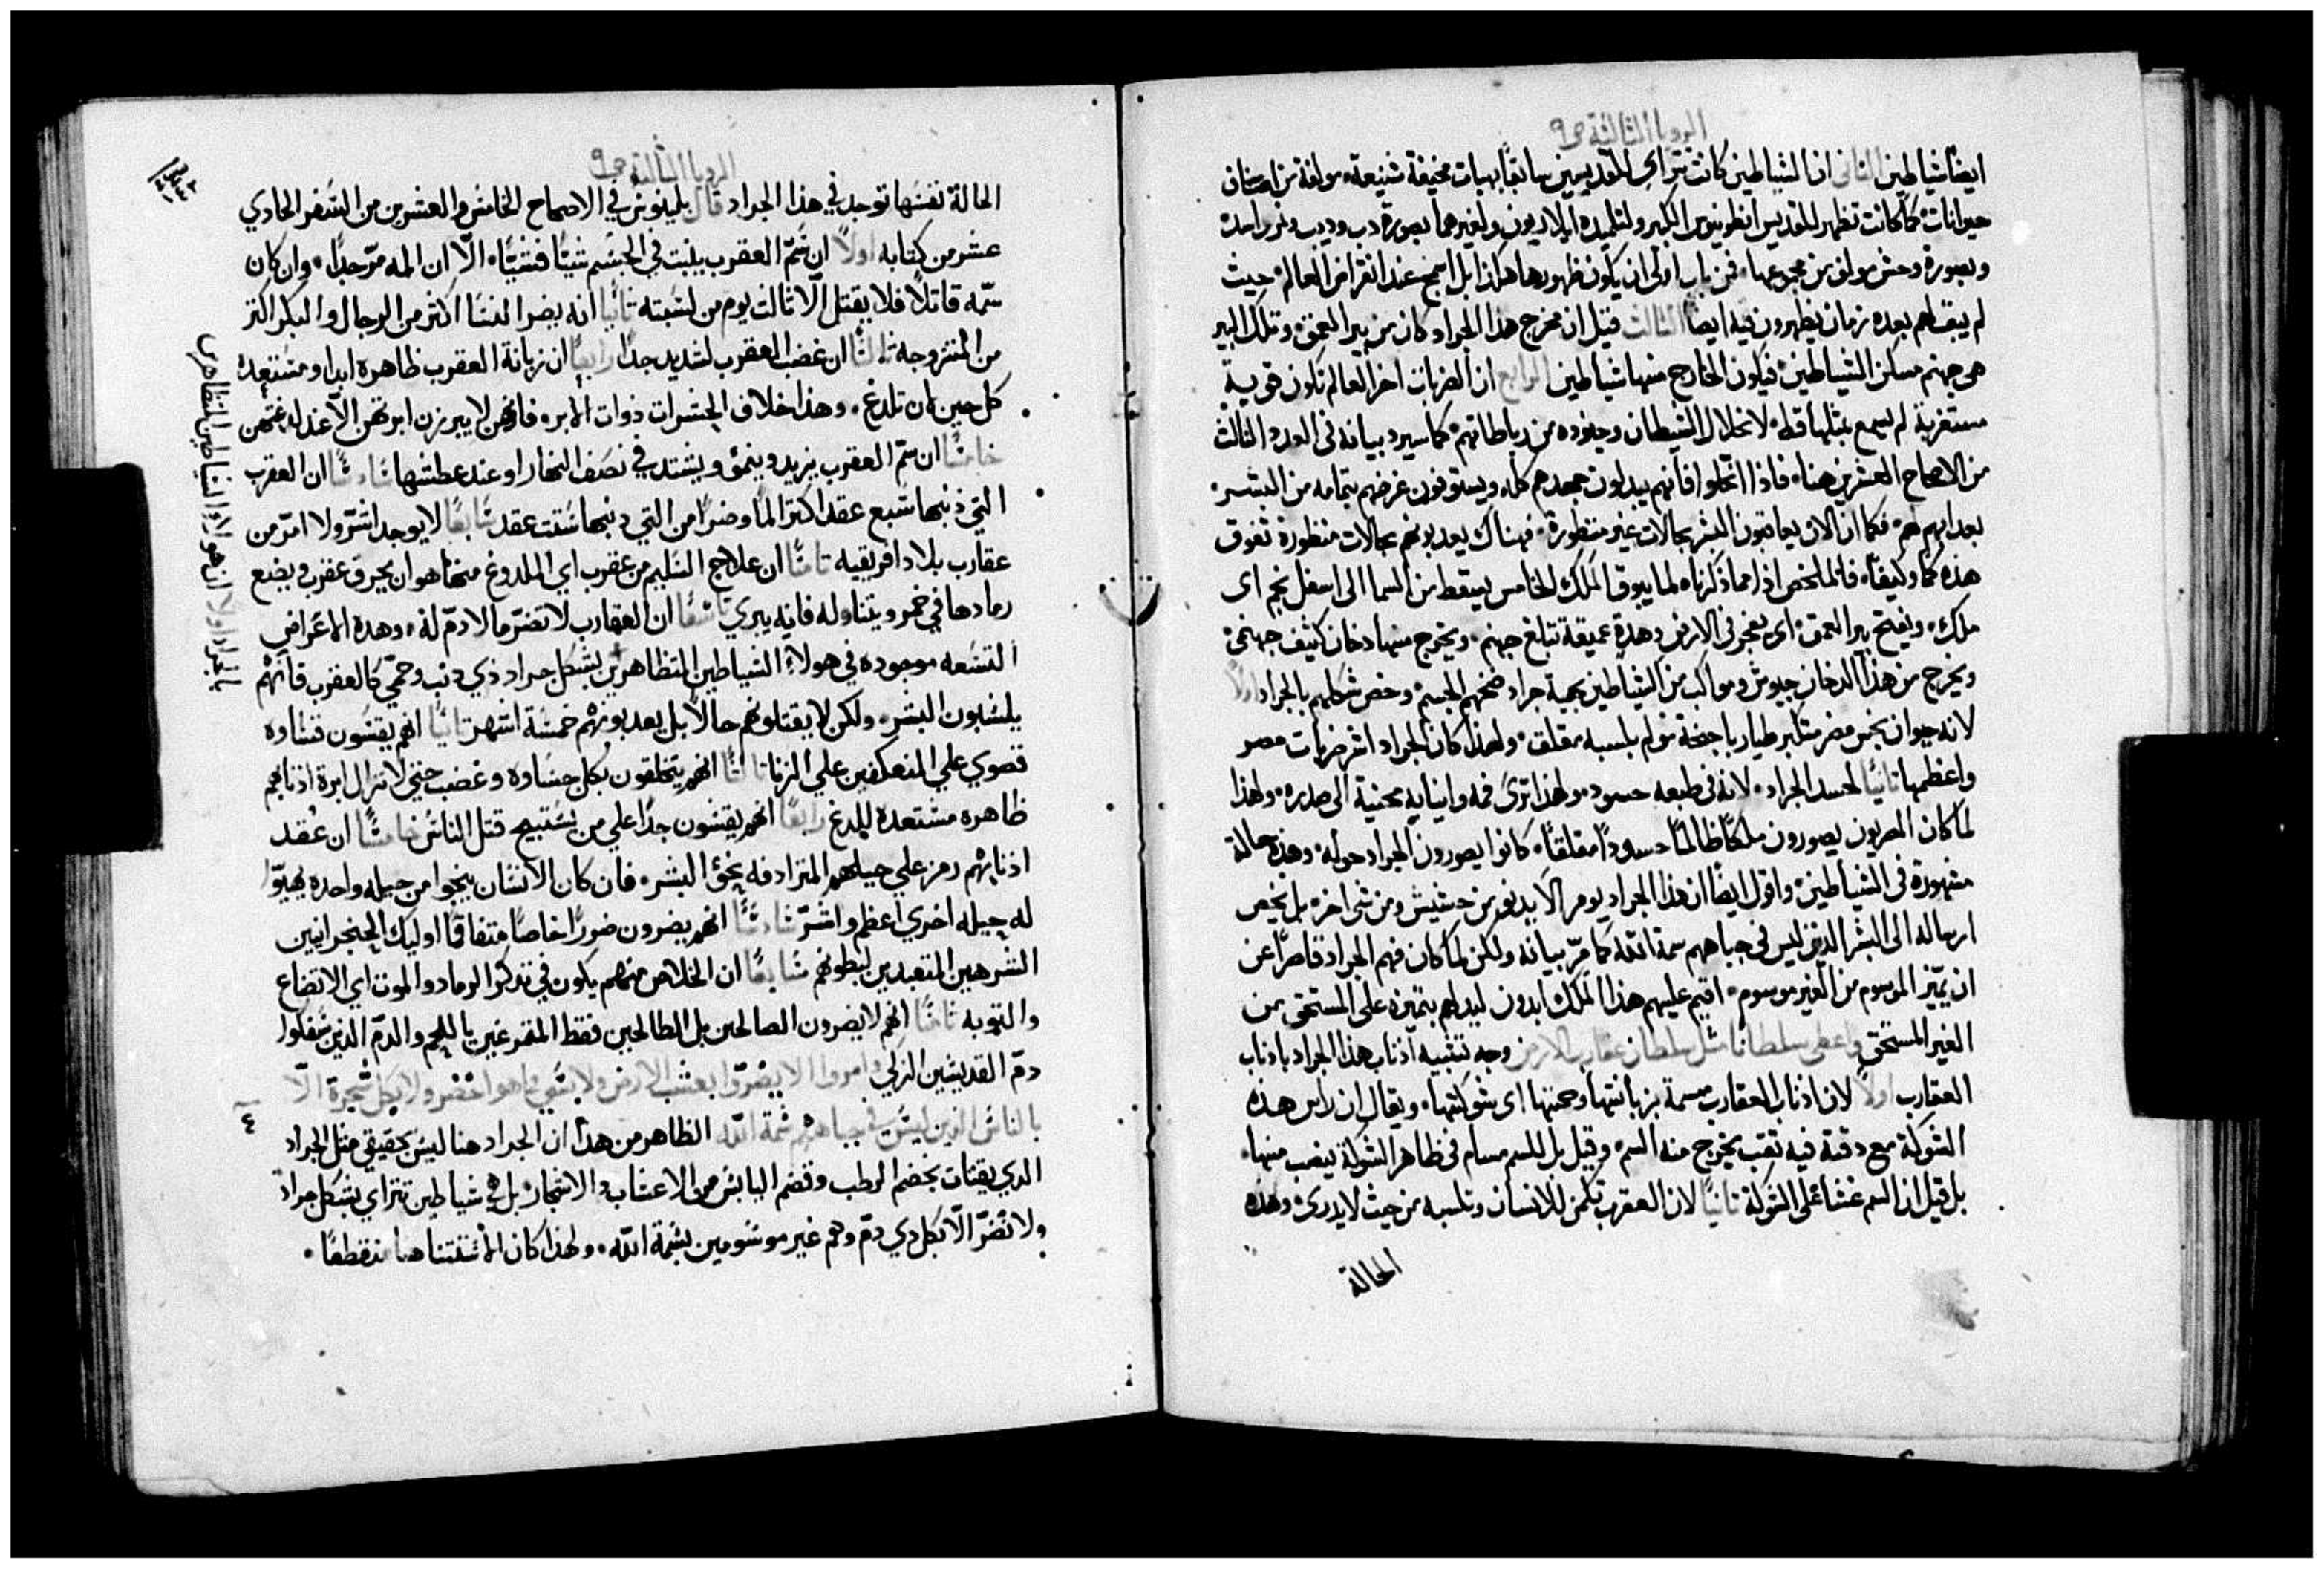 الرويا الثالثة ص٩
ايضًا شياطين الثاني ان الشياطين كانت تتراي للقديسين سابقًا بهيات مخيفة شنيعة مولفة من اصناف
حيوانات كما كانت تظهر للقديس انطونيوس الكبير ولتلميذه ايلاريون ولغيرهما بصورة دب وديب ونمر واسد
وبصورة وحش مولف من مجموعها فمن باب اولى ان يكون ظهورها هكذا بل اسمج عند انقراض العالم حيث
لم يبق لهم بعده زمان يظهرون فيه ايضًا الثالث قيل ان مخرج هذا الجراد كان من بير العمق وتلك البير
هي جهنم مسكن الشياطين فيكون الخارج منها شياطين الرابع ان الضربات اخر العالم تكون قوية
مستغربة لم يسمع بمثلها قط لانحلال الشيطان وجنوده من رباطاتهم كما سيرد بيانه في العدد الثالث
من الاصحاح العشرين هنا فاذا انحلوا فانهم يبدلون جهدهم كله ويستوفون غرضهم بتمامه من البشر
بعدابهم هم فكما ان الان يعاقبون البشر بحالات غير منظورة فهناك يعدبونهم بحالات منظورة تفوق
هذه كمًا وكيفًا فالملخص اذا مما ذكرناه لما يبوق الملك الخامس يسقط من السما الى اسفل نجم اى
ملك ويفتح بير العمق اى يفجر في الارض وهدة عميقة تبلغ جهنم ويخرج منها دخان كثيف جهنمي
ويخرج من هذا الدخان جيوش ومواكب من الشياطين بهية جراد ضخيم الجسم وخص شكلهم بالجراد اولًا
لانه حيوان نجس مضر متكبر طيار باجنحة مولم بلسبه مقلق ولهذا كان الجراد اشر ضربات مصر
واعظمها ثانيًا لحسد الجراد لانه في طبعه حسود ولهذا ترى فمه وانيابه محنية الى صدره ولهذا
لما كان المصريون يصورون ملكًا ظالمًا حسودًا مقلقًا كانوا يصورون الجراد حوله وهذه حالة
مشهورة في الشياطين واقول ايضًا ان هذا الجراد يومر الا يدنو من حشيش ومن شي اخر بل يخص
ارساله الى البشر الذين ليس في جباههم سمة الله كما مرّ بيانه ولكن لما كان فهم الجراد قاصرًا عن
ان يميّز الموسوم من الغير موسوم اقيم عليهم هذا الملك ابدون ليدلهم بتميزه على المستحق من
الغير المستحق واعطى سلطانًا مثل سلطان عقارب الارض وجه تشبيه اذناب هذا الجراد باذناب
العقارب اولًا لان اذناب العقارب مسمة بزبانتها وحمتها اى شوكتها ويقال ان راس هذه
الشوكة مع دقته فيه ثقب يخرج منه السم وقيل بل للسم مسام في ظاهر الشوكة ينضب منها
بل قيل ان السم غشا على الشوكة ثانيًا لان العقرب تكمن للانسان وتلسبه من حيث لا يدرى وهذه
الحالة
الرويا الثالثة ص٩
الحالة نفسها توجد في هذا الجراد قال بلينوس في الاصحاح الخامس والعشرين من السفر الحادي
عشر من كتابه اولًا ان سمّ العقرب يلبت في الجسم شيًا فشيًا الّا ان المه مرّ جدًا وان كان
سمّه قاتلًا فلا يقتل الّا ثالت يوم من لسبته ثانيًا انه يضر النسا اكثر من الرجال والبكر اكثر
من المتزوجة ثالثًا ان غضب العقرب لشديد جدًا رابعًا ان زبانة العقرب ظاهره ابدا ومستعده
كل حين ان تلدغ وهذا خلاف الحشرات ذوات الابر فانهن لا يبرزن ابرتهن الّا عند لدغتهن
خامسًا ان سمّ العقرب يزيد وينمو ويشتد في نصف النهار او عند عطشها سادسًا ان العقرب
التي ذنبها سبع عقد اكثر المًا وضرًا من التي دنبها ستت عقد سابعًا لا يوجد اشرّ ولا امرّ من
عقارب بلاد افريقيه ثامنًا ان علاج السليم من عقرب اي الملدوغ منها هو ان يحرق عقرب ويضع
رمادها في خمر ويتناوله فانه يبري تاسعًا ان العقارب لا تضرّ ما لا دمّ له وهده الاعراض
التسعه موجوده في هولاء الشياطين المتظاهرين بشكل جراد ذي دنب وحمّي كالعقرب فانهم
يلسبون البشر ولكن لا يقتلونهم حالًا بل يعدبونهم خمسة اشهر ثانيًا انهم يقسون قساوه
قصوي علي المنعكفين علي الزنا ثالثًا انهم يتخلقون بكل جساره وغضب حتي لا تزال ابرة اذنابهم
ظاهره مستعده للدغ رابعًا انهم يقسون جدًا علي من يستبيح قتل الناس خامسًا ان عُقد
اذنابهم رمز علي حيلهم المترادفه نحو البشر فان كان الانسان ينجوا من حيله واحده يهيّوا
له حيله اخري اعظم واشرّ سادسًا انهم يضرون ضررًا خاصًا متفاقًا اوليك الحنجرانيين
الشرهين المتعبدين لبطونهم سابعًا ان الخلاص منهم يكون في تدكر الرماد والموت اي الاتضاع
والتوبه ثامنًا انهم لا يضرون الصالحين بل الطالحين فقط المتمرغين باللحم والدمّ الذين سفكوا
دمّ القديسين الزكي وامروا الا يضرّوا بعشب الارض ولا بشي ما هو اخضر ولا بكل شجرة الّا
بالناس الذين ليس في جباههم سمة الله الظاهر من هدا ان الجراد هنا ليس كحقيقي مثل الجراد
الدي يقتات بخضم الرطب وقضم اليابس من الاعشاب والاشجار بل هي شياطين تتراي بشكل جراد
ولا تضرّ الّا بكل دي دمّ وهم غير موسومين بسمة الله ولهذا كان
٤
اولًا ان هولاء الشياطين المتظاهرين
بالجراد